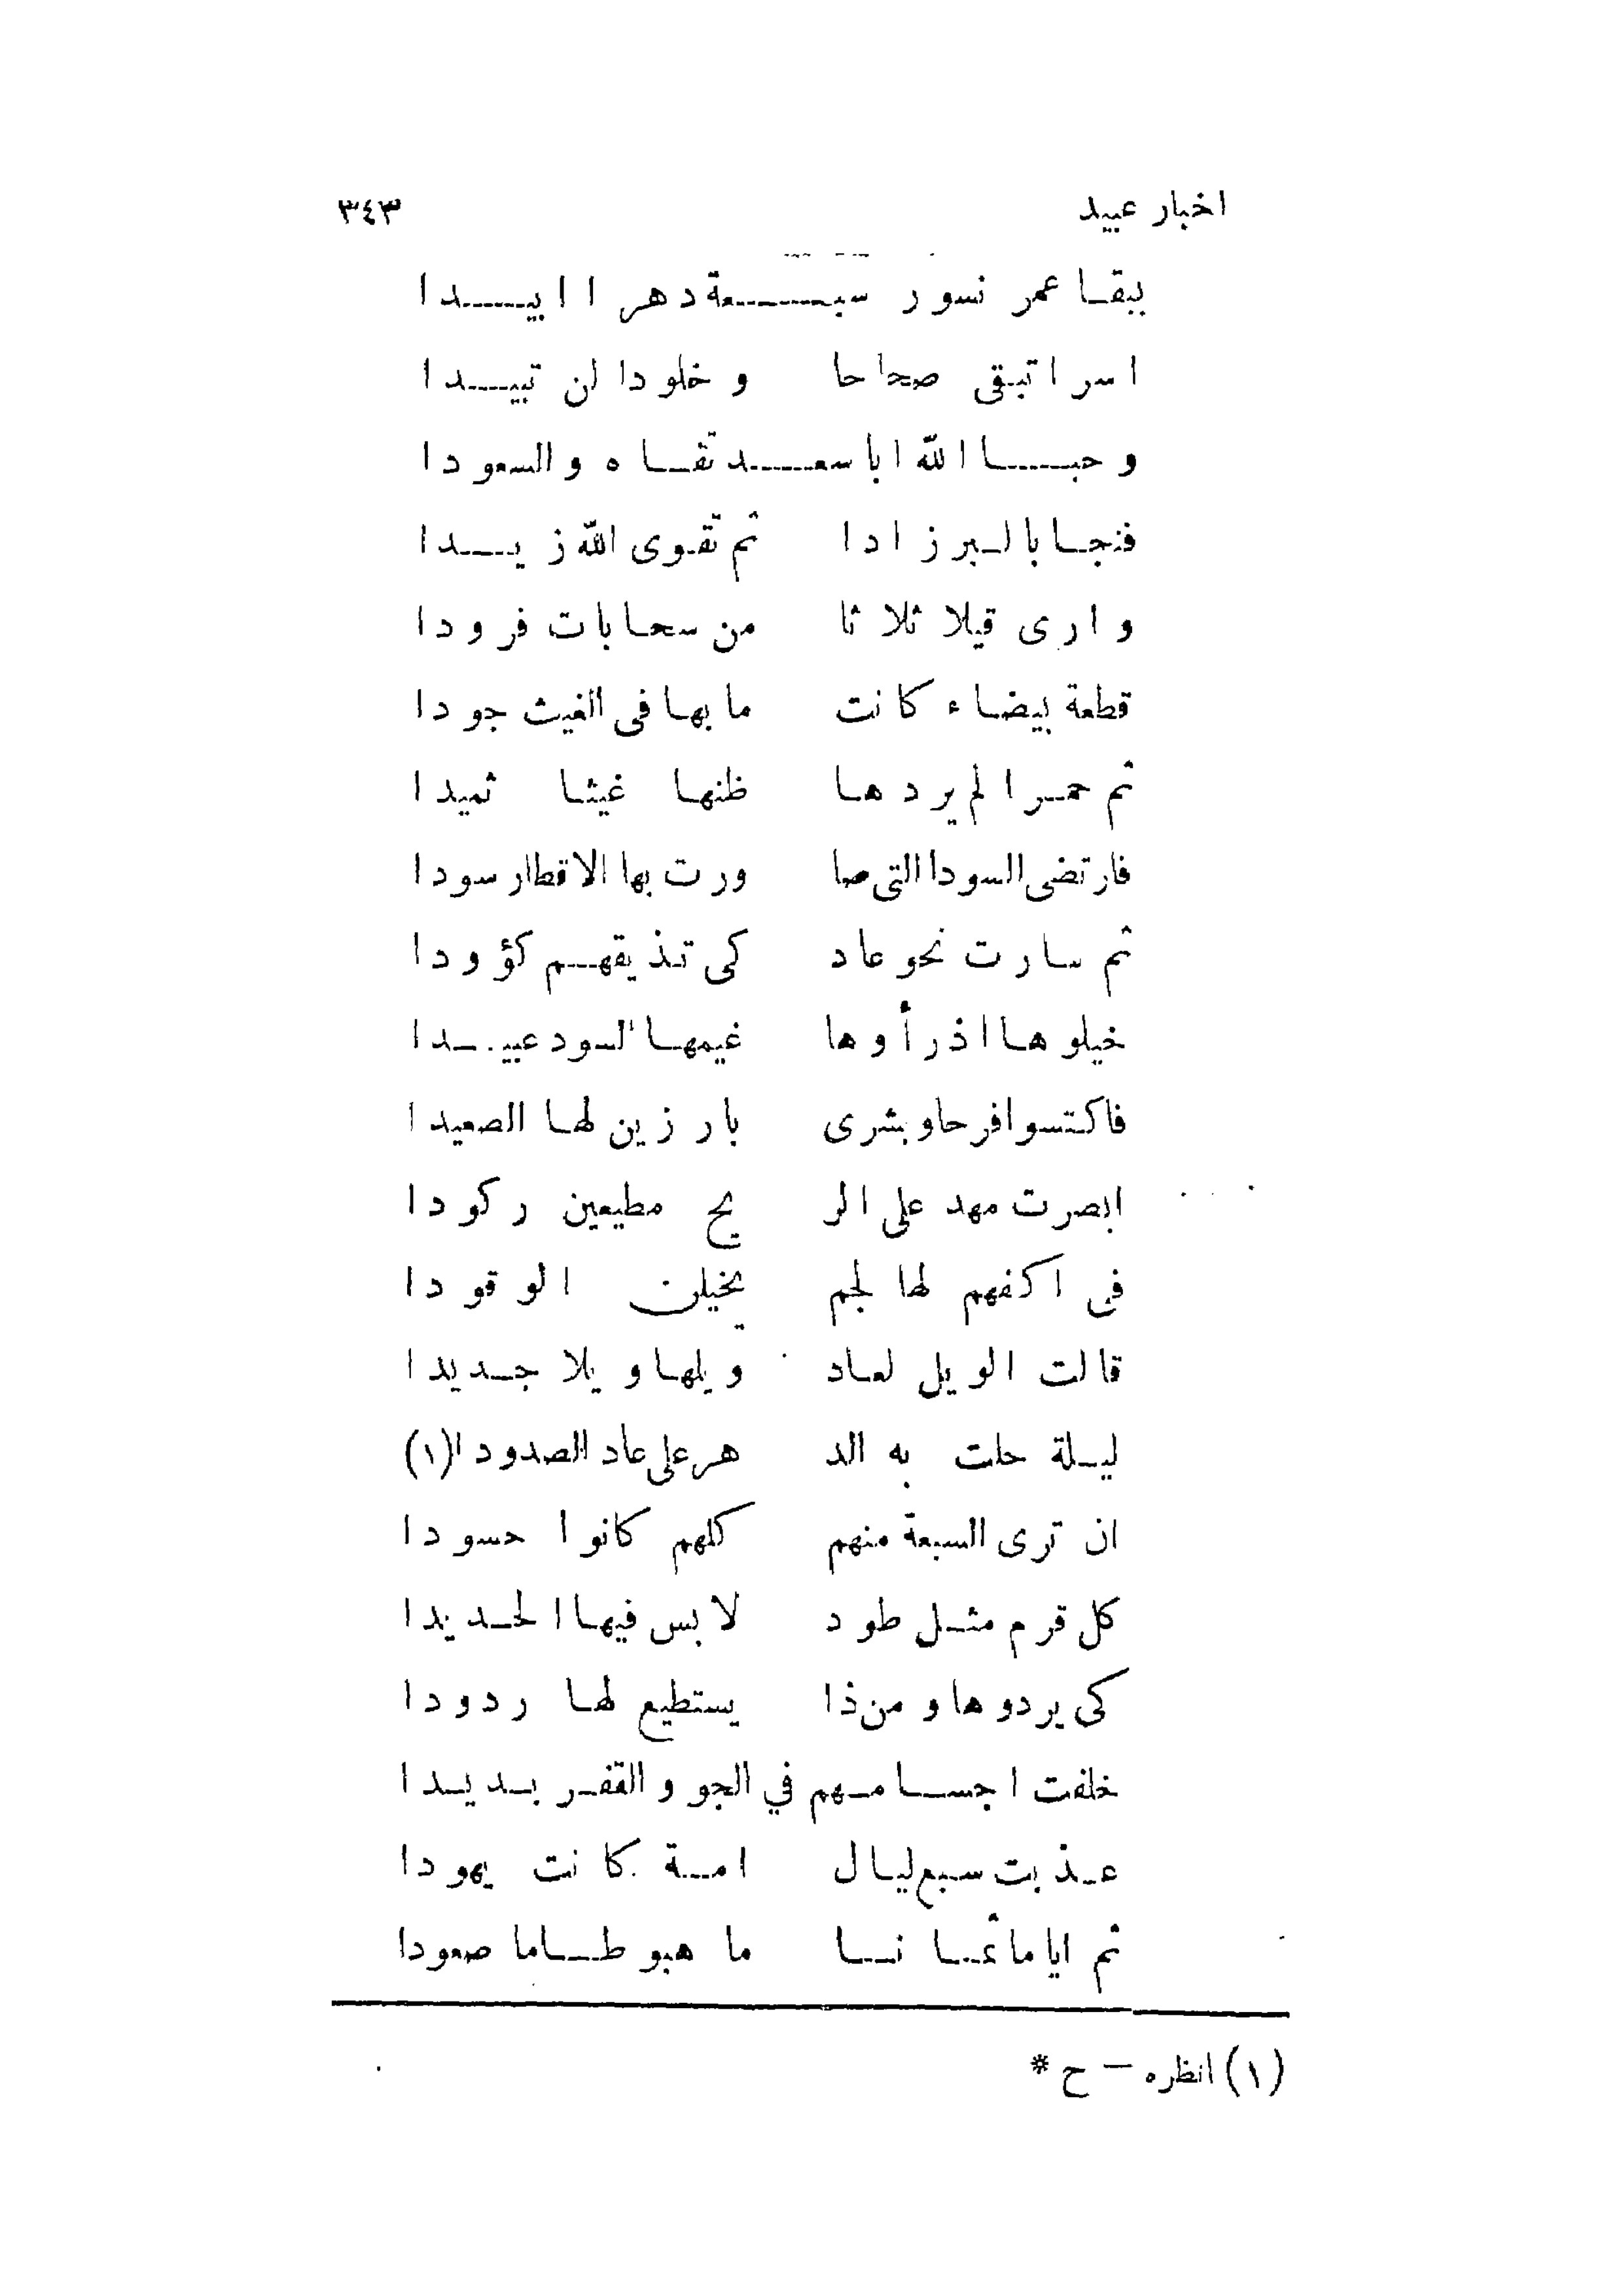 اخبار عبيد ٣٤٣
ببقا عمر نسور سبعة دهرا ابيدا
اسرا تبقى صحاحا وخلودا لن تبيدا
وحبا الله ابا سعد تقاه والسعودا
فنجا بالبر زادا ثم تقوى الله زيدا
وارى قيلا ثلاثا من سحابات فرودا
قطعة بيضاء كانت ما بها فى الغيث جودا
ثم حمرا لم يردها ظنها غيثا ثميدا
فارتضى السودا التى صا ورت بها الاقطار سودا
ثم سارت نحو عاد كى تذيقهم كؤودا
خيلوها اذ رأوها غيمها السود عبيدا
فاكتسوا فرحا وبشرى بارزين لها الصعيدا
ابصرت مهد على الر يح مطيعين ركودا
فى اكفهم لها لجم يخيلن الوقودا
قالت الويل لعاد ويلها ويلا جديدا
ليلة حلت به الد هر على عاد الصدودا (١)
ان ترى السبعة منهم كلهم كانوا حسودا
كل قرم مثل طود لابس فيها الحديدا
كى يردوها ومن ذا يستطيع لها ردودا
خلفت اجسامهم في الجو والقفر بديدا
عذبت سبع ليال امة كانت يهودا
ثم اياما ثمانا ما هبوطا ما صعودا
(١) انظره — ح *